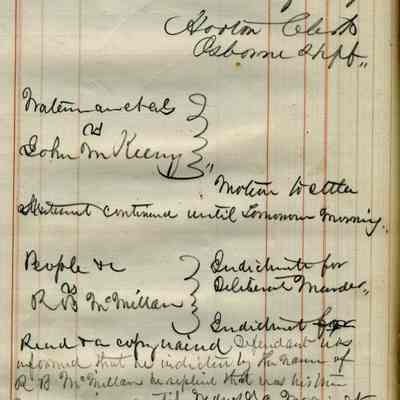 Horton Clerk
Osborne Shff.,
Waterman et als
vs
John McKeeny
Motion to settle
Statement continued until Tomorrow morning.
People &c
vs
R B McMillan
Indictmt for
Deliberate Murder,,
Indictment
Read & a copy waived Defendant was
informed that he indicted by the name of
R. B McMillan he replied that was his true